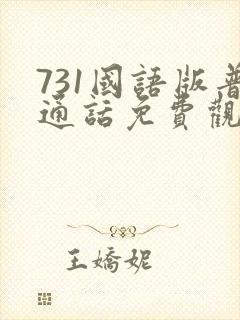 731國語版普
通話免費觀
王嬌妮